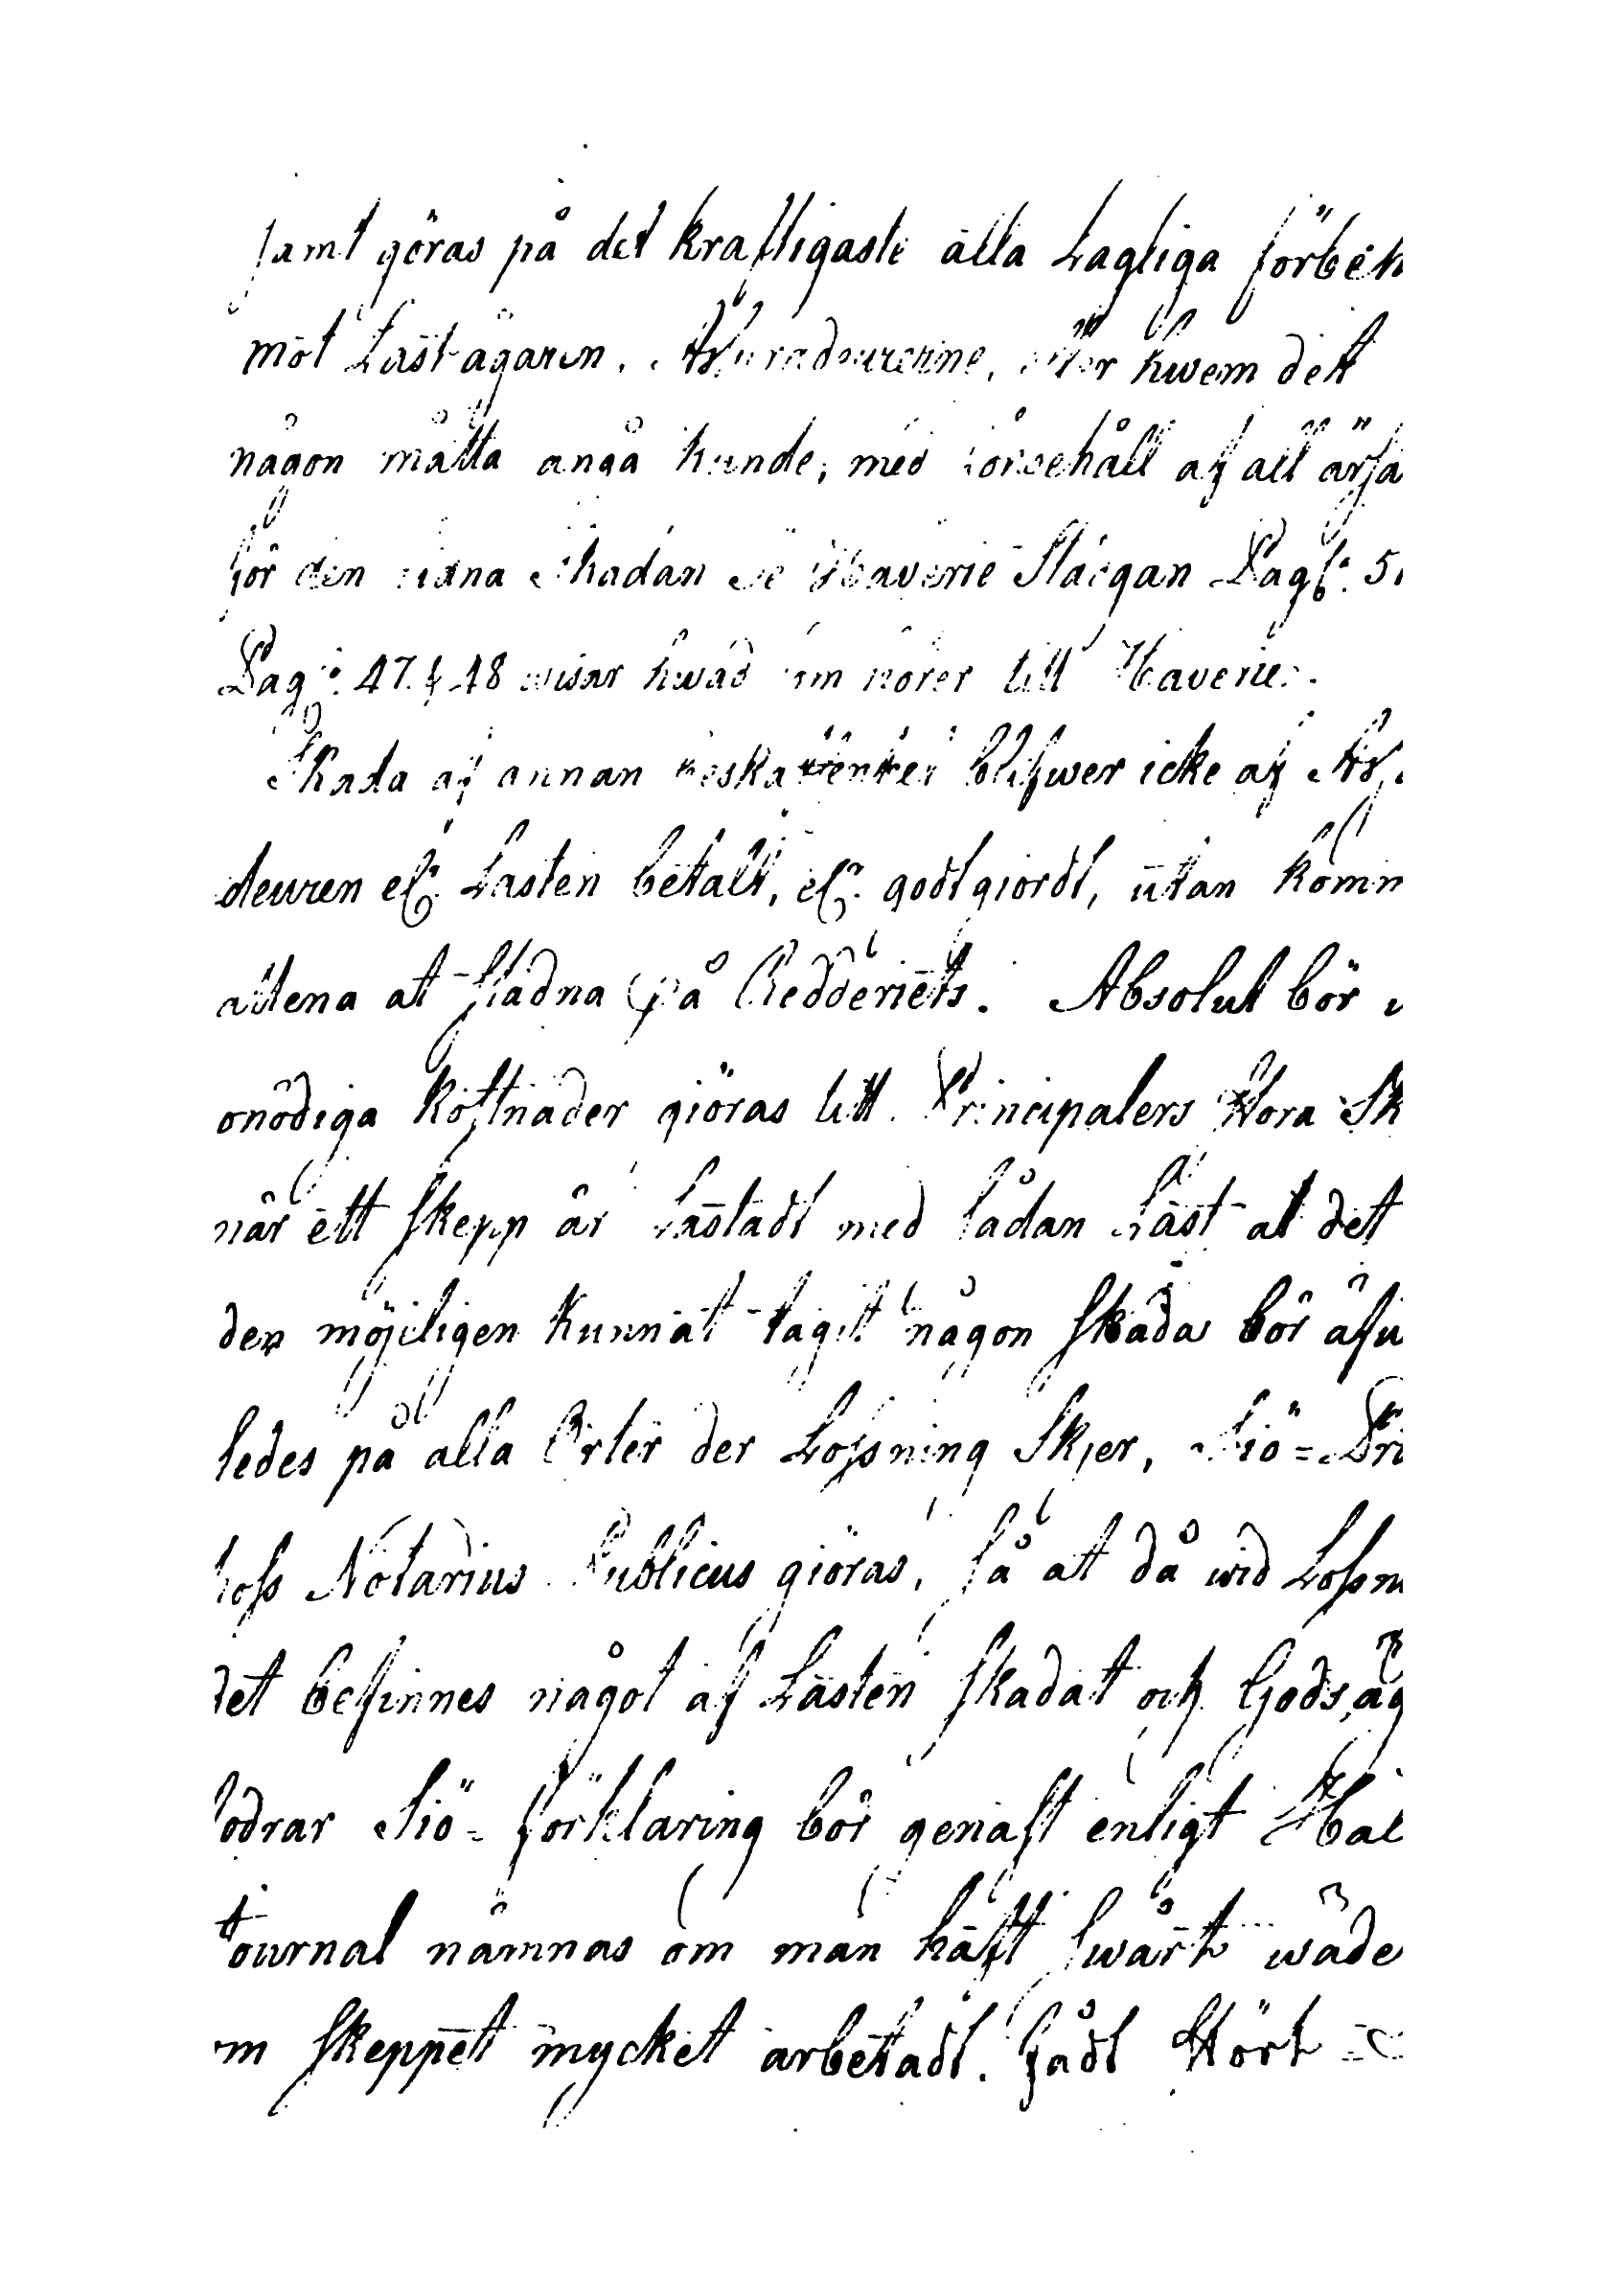 samt göras på det kraftigaste alla Lagliga förbeh
mot Last-ägaren, Assuradeurerne, eller hwem dett
någon måtta angå kunde, med förbehåll af all ärsä
för den lidna Skadan se Haverie Stadgan Pag: 5
Pag: 47. & 48 wisar hwad som hörer till Haverie.
Skada af annan beskaffenhet blifwer icke af Assu
deuren el: Lasten betalt, el: godtgiordt, utan komm
allena at stadna på Redderiets. Absolut bör
onödiga kostnader giöras till Principalers stora Sk
när ett skepp är Lastadt med sådan Last at det
der möjeligen kunnat tagit någon skada bör äfw
ledes på alla Orter der Lossning Skjer, Siö=Pri
hoss Notarius Publicus giöras, så at då wid Lossn
det befinnes något af Lasten skadat och Gods,äg
fodrar Siö=förklaring bör genast enligt Hål
Journal nämnas om man häft swårt wäde
m skeppet mycket arbetadt. fådt Stört